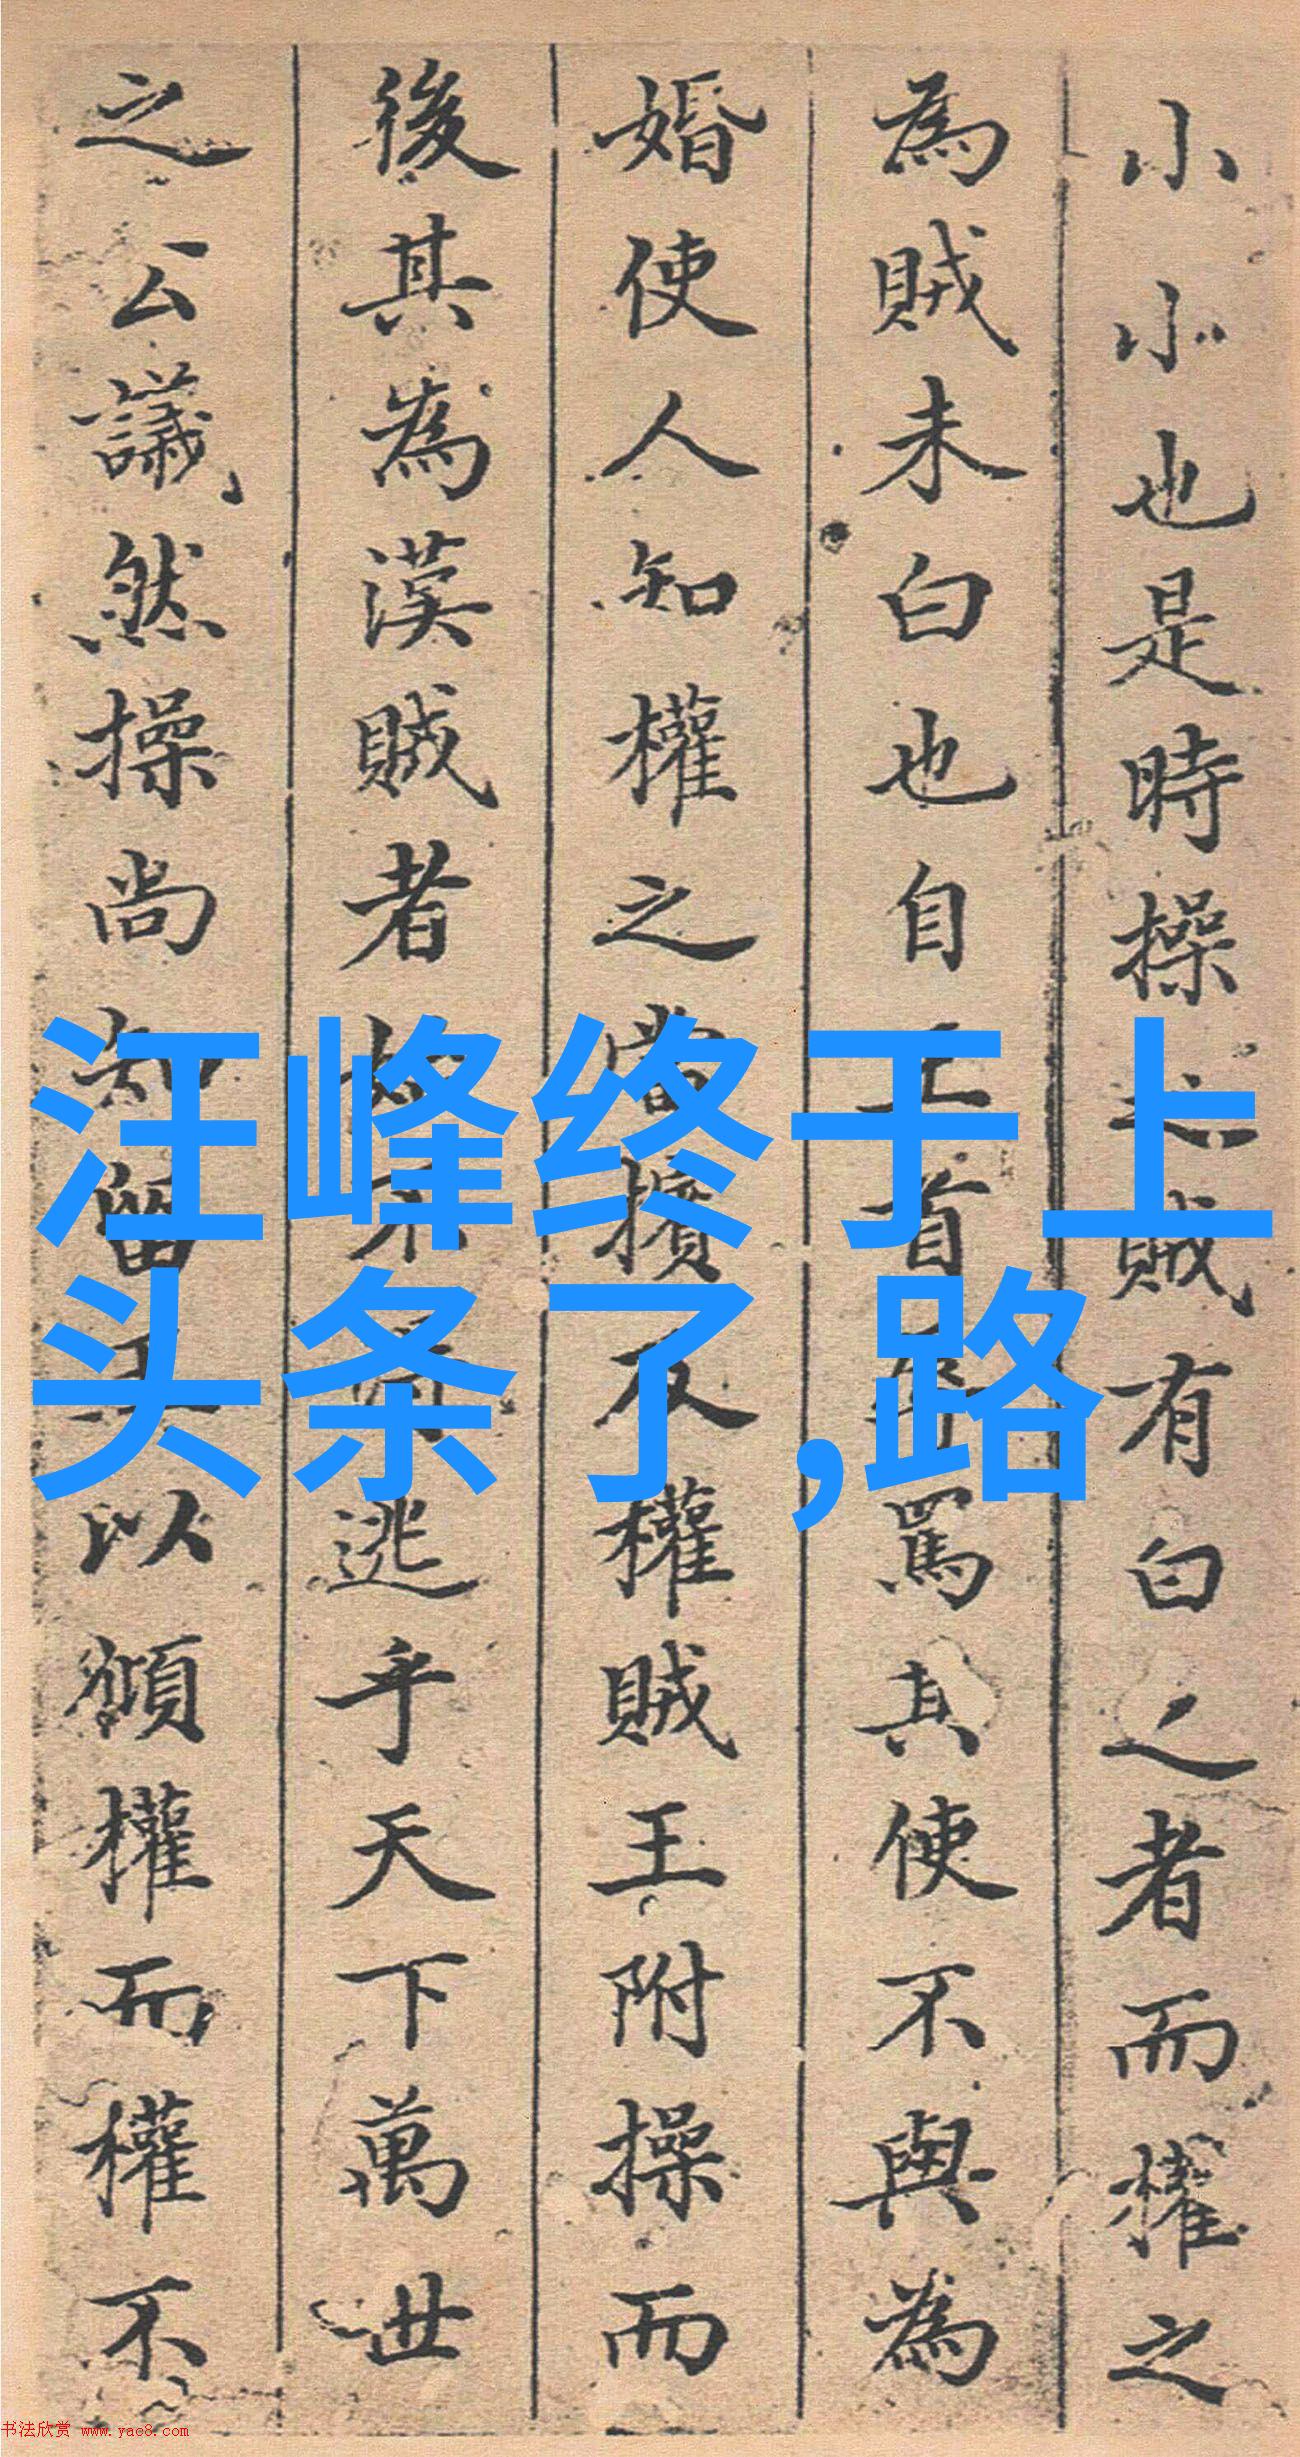 小小也是時操之賊有白之者而權之
為賊未白也自首罵其使不與為
婚使人知權之當擯權賊王附操而
後其為漢賊者不逃乎天下萬世
之公議然操尚知留以權而權不
汪峰终于上
头条了,路
书法欣赏 www.yac8.com